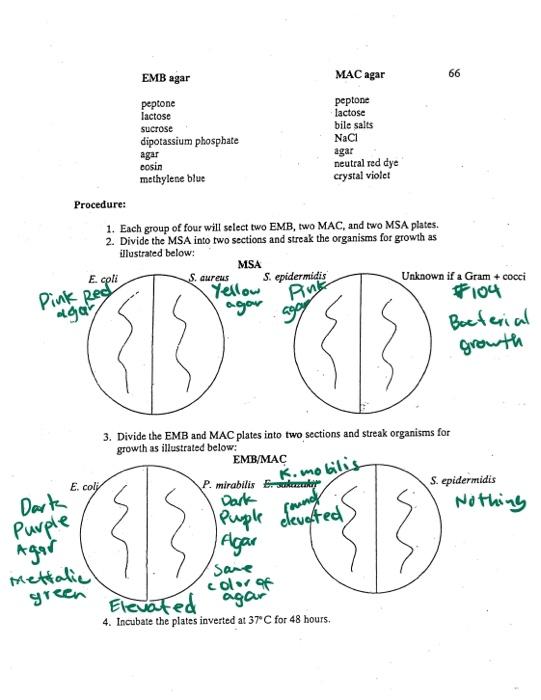 66
EMB agar MAC agar
peptone peptone
lactose lactose
sucrose bile salts
dipotassium phosphate NaCl
agar agar
eosin neutral red dye
methylene blue crystal violet
Procedure:
1. Each group of four will select two EMB, two MAC, and two MSA plates.
2. Divide the MSA into two sections and streak the organisms for growth as
illustrated below:
MSA
E. coli S. aureus S. epidermidis Unknown if a Gram + cocci
Pink Red
agar
Yellow
agar
Pink
agar
#104
Bacterial
growth
3. Divide the EMB and MAC plates into two sections and streak organisms for
growth as illustrated below:
EMB/MAC
E. coli P. mirabilis K. mobilis S. epidermidis
Dark
Purple
Agar
Mettalic
green
Elevated
Dark
Puple
Agar
Same
color of
agar
round
elevated
Nothing
4. Incubate the plates inverted at 37°C for 48 hours.